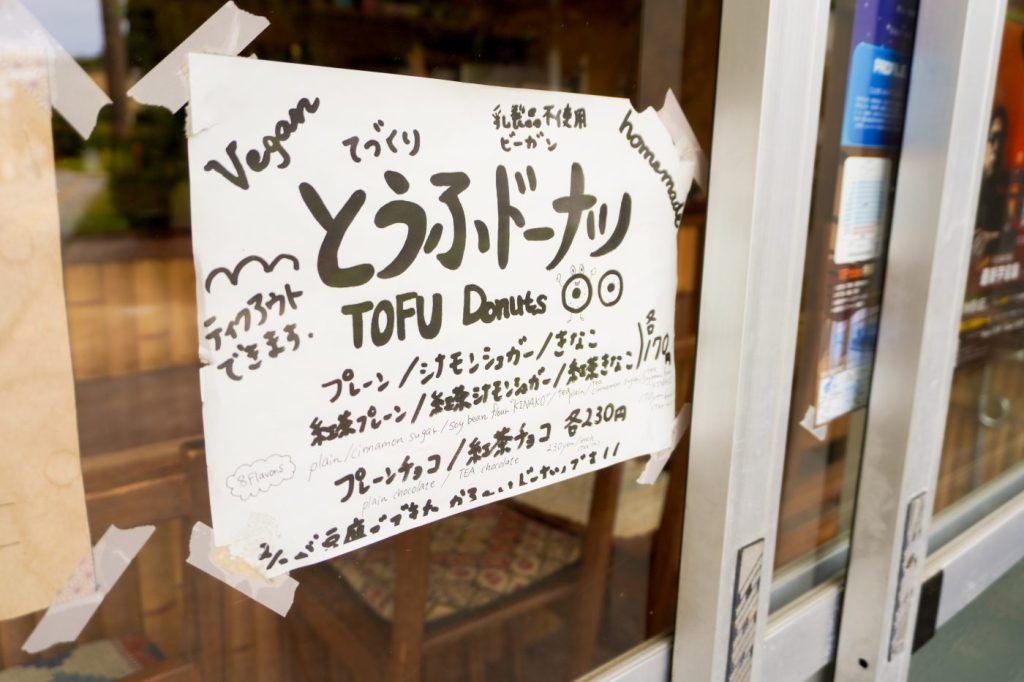 Vegan
てづくり
乳製品不使用
ビーガン
homemade
とうふドーナツ
TOFU Donuts
テイクアウト
できます.
プレーン/シナモンシュガー/きなこ
紅茶プレーン/紅茶シナモンシュガー/紅茶きなこ
各170
plain/cinnamon sugar/soy bean flour "KINAKO"/tea plain/tea cinnamon sugar
8 Flavors
プレーンチョコ/紅茶チョコ 各230円
plain chocolate / TEA chocolate 230yen/each
PROFILE